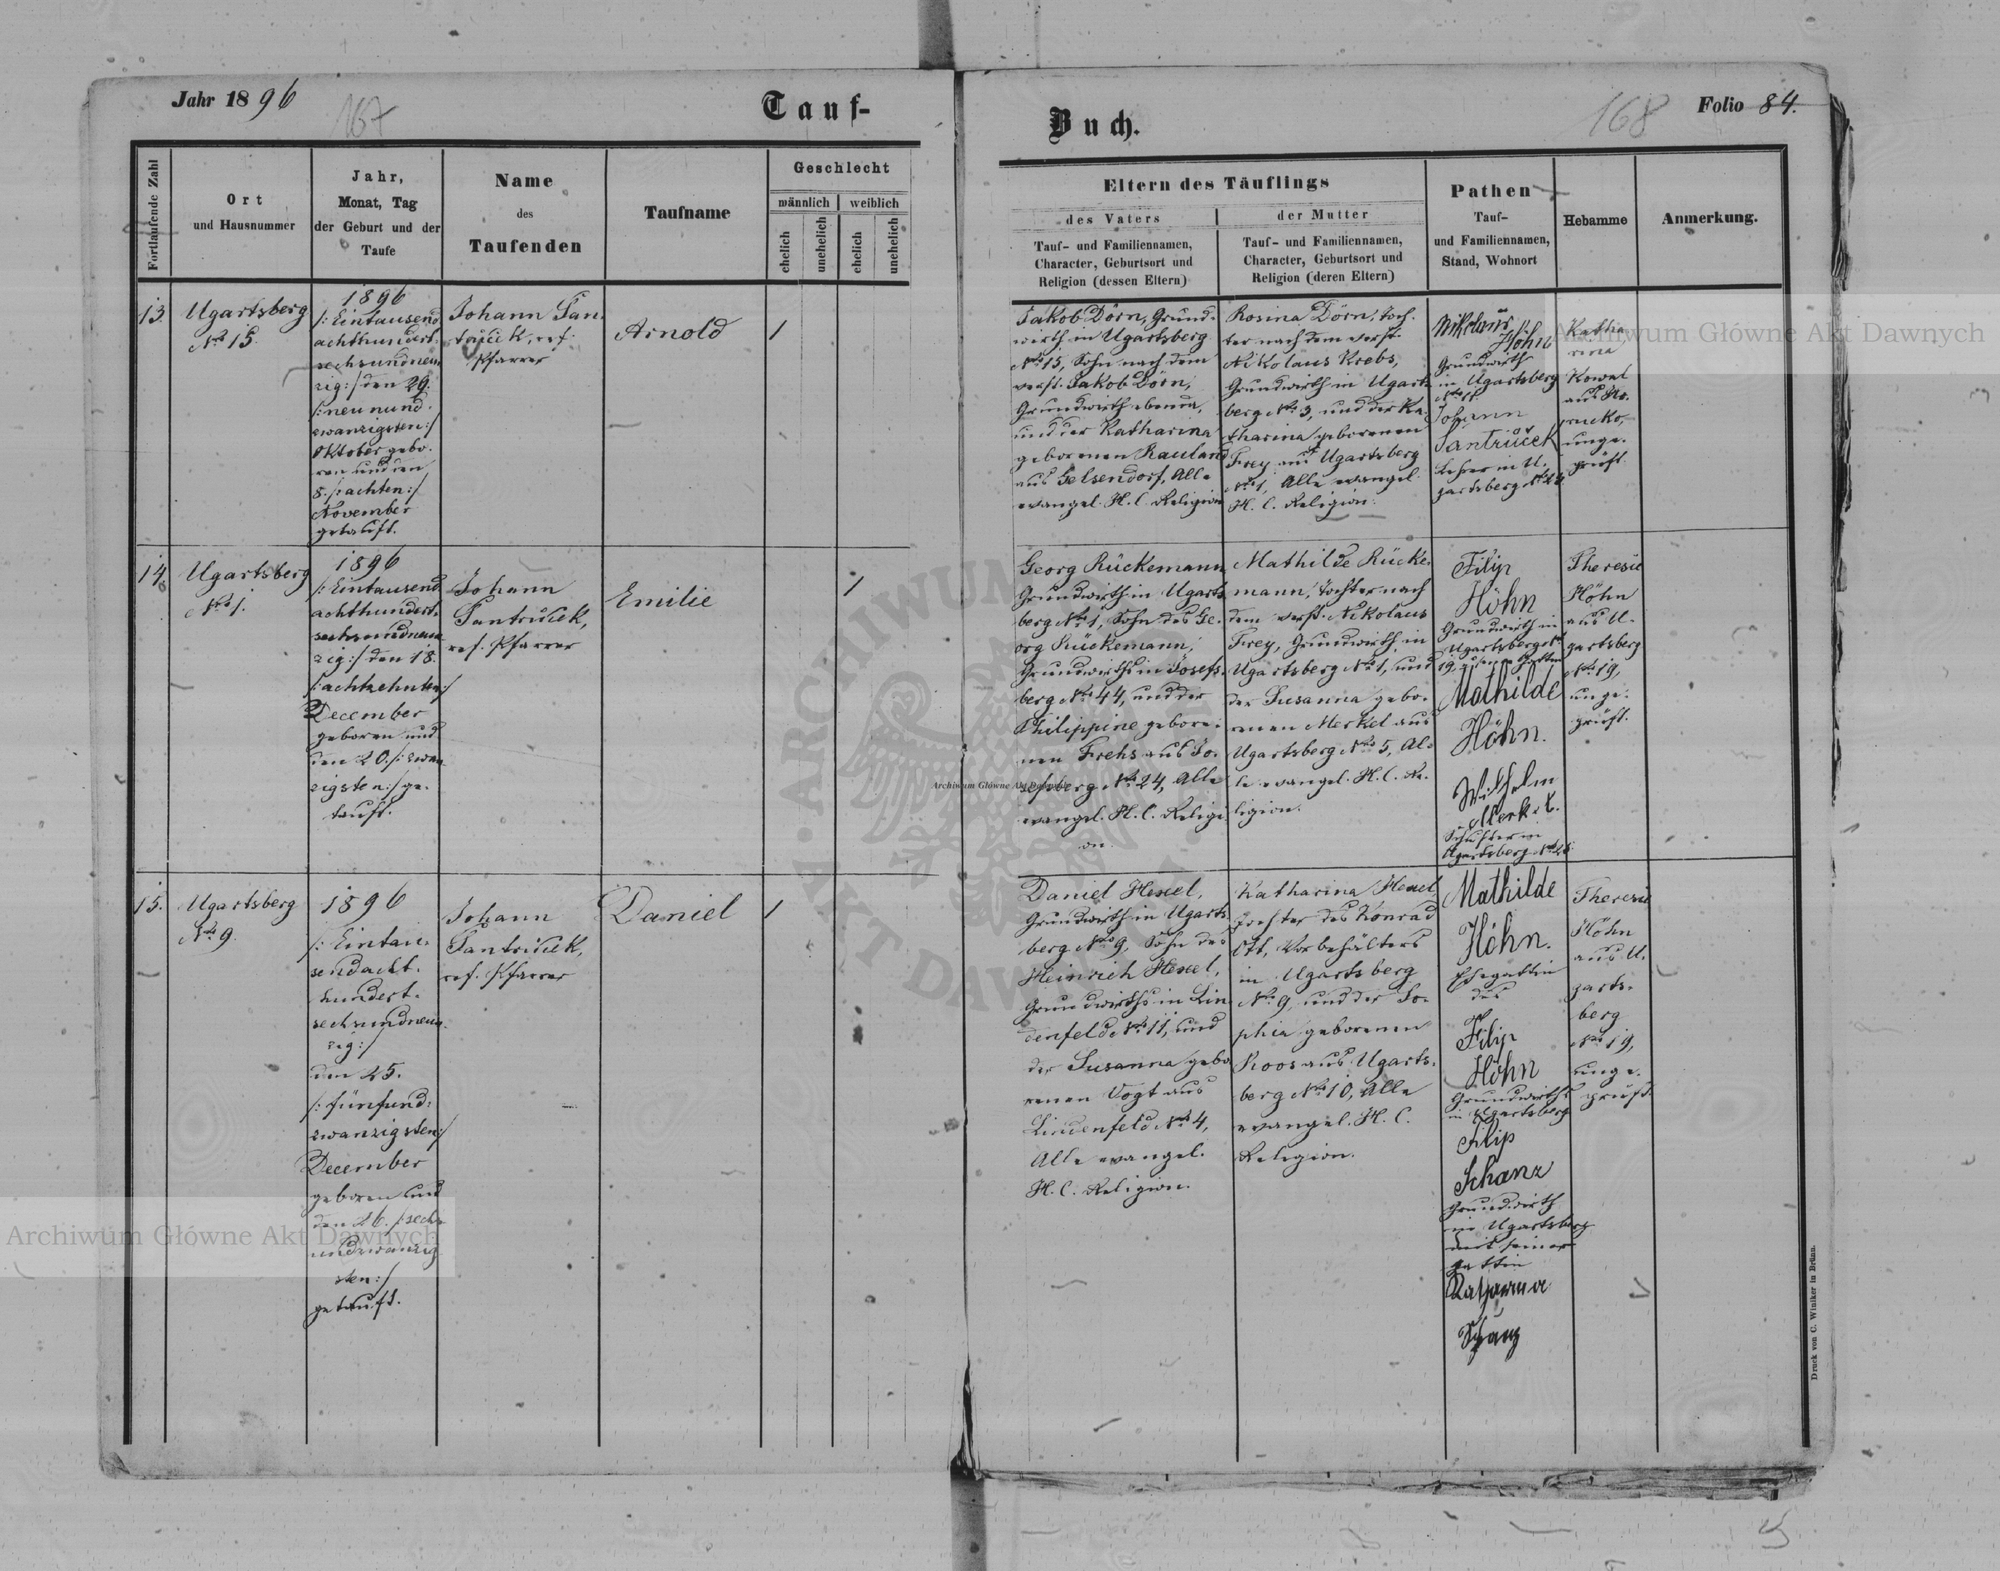 Jahr 1896
167
Tauf-
Buch.
168
Folio 84.
Fortlaufende Zahl
Ort
und Hausnummer
Jahr,
Monat, Tag
der Geburt und der
Taufe
Name
des
Taufenden
Taufname
Geschlecht
männlich
weiblich
ehelich
unehelich
ehelich
unehelich
Eltern des Täuflings
des Vaters
Tauf- und Familiennamen,
Character, Geburtsort und
Religion (dessen Eltern)
der Mutter
Tauf- und Familiennamen,
Character, Geburtsort und
Religion (deren Eltern)
Pathen
Tauf-
und Familiennamen,
Stand, Wohnort
Hebamme
Anmerkung.
13.
Ugartsberg
No 15.
1896
/: Eintausend
achthundert-
sechsundneun
zig :/ den 29.
/: neunund-
zwanzigsten :/
Oktober gebo-
ren und den
8. /: achten :/
November
getauft.
Johann San-
trůček, ref.
Pfarrer
Arnold
1
Jakob Dörn, Grund-
wirth in Ugartsberg
No 15, Sohn nach dem
verst. Jakob Dörn,
Grundwirth ebenda,
und der Katharina
geborenen Rauland
aus Gelsendorf, Alle
evangel. H. C. Religion
Rosina Dörn, Toch-
ter nach dem verst.
Nikolaus Krebs,
Grundwirth in Ugarts-
berg No 3, und der Ka-
tharina geborenen
Frey aus Ugartsberg
No 1, Alle evangel.
H. C. Religion.
Nikolaus
Höhn
Grundwirth
in Ugartsberg
Johann
Santrůček
Lehrer in U-
gartsberg No 24
Katha
rina
Kowal
aus
unge-
prüft.
14.
Ugartsberg
No 1.
1896
/: Eintausend
achthundert-
sechsundneun
zig :/ den 18.
/: achtzehnten :/
December
geboren und
den 20. /: zwan
zigsten :/ ge-
tauft.
Johann
Santrůček,
ref. Pfarrer
Emilie
1
Georg Rückemann
Grundwirth in Ugarts
berg No 1, Sohn des Ge-
org Rückemann,
Grundwirths in Josefs-
berg No 44, und der
Philippine gebore-
nen Frehs aus Jo-
sefsberg No 24, Alle
evangel. H. C. Religi-
on.
Mathilde Rücke-
mann, Tochter nach
dem verst. Nikolaus
Frey, Grundwirth in
Ugartsberg No 1, und
der Susanna gebo-
renen Merkel aus
Ugartsberg No 5, Al-
le evangel. H. C. Re-
ligion.
Filip
Höhn
Grundwirth in
Ugartsberg No
19,
Mathilde
Höhn.
Wilhelm
Merkel.
Schuster in
Ugartsberg No 26
Theresie
Höhn
aus U-
gartsberg
No 19,
unge-
prüft.
15.
Ugartsberg
No 9.
1896
/: Eintau-
sendacht-
hundert-
sechsundneun
zig :/
den 25.
/: fünfund-
zwanzigsten :/
December
geboren und
den 26. /: sechs
undzwanzig
sten :/
getauft.
Johann
Santrůček,
ref. Pfarrer
Daniel
1
Daniel Hexel,
Grundwirth in Ugarts
berg No 9, Sohn des
Heinrich Hexel,
Grundwirths in Lin
denfeld No 11, und
der Susanna gebo
renen Vogt aus
Lindenfeld No 4,
Alle evangel.
H. C. Religion.
Katharina Hexel
Tochter des Konrad
Ott, Vorbehälters
in Ugartsberg
No 9, und der So-
phia geborenen
Koos aus Ugarts-
berg No 10, Alle
evangel. H. C.
Religion.
Mathilde
Höhn.
Ehegattin
des
Filip
Höhn
Grundwirths
in Ugartsberg
Filip
Schanz
Grundwirth
in Ugartsberg
mit seiner
Gattin
Katharina
Schanz
Theresie
Höhn
aus U-
garts-
berg
No 19,
unge-
prüft.
Druck von C. Winiker in Brünn.
Archiwum Główne Akt Dawnych
Archiwum Główne Akt Dawnych
Archiwum Główne Akt Dawnych
ARCHIWUM
AKT DAWN